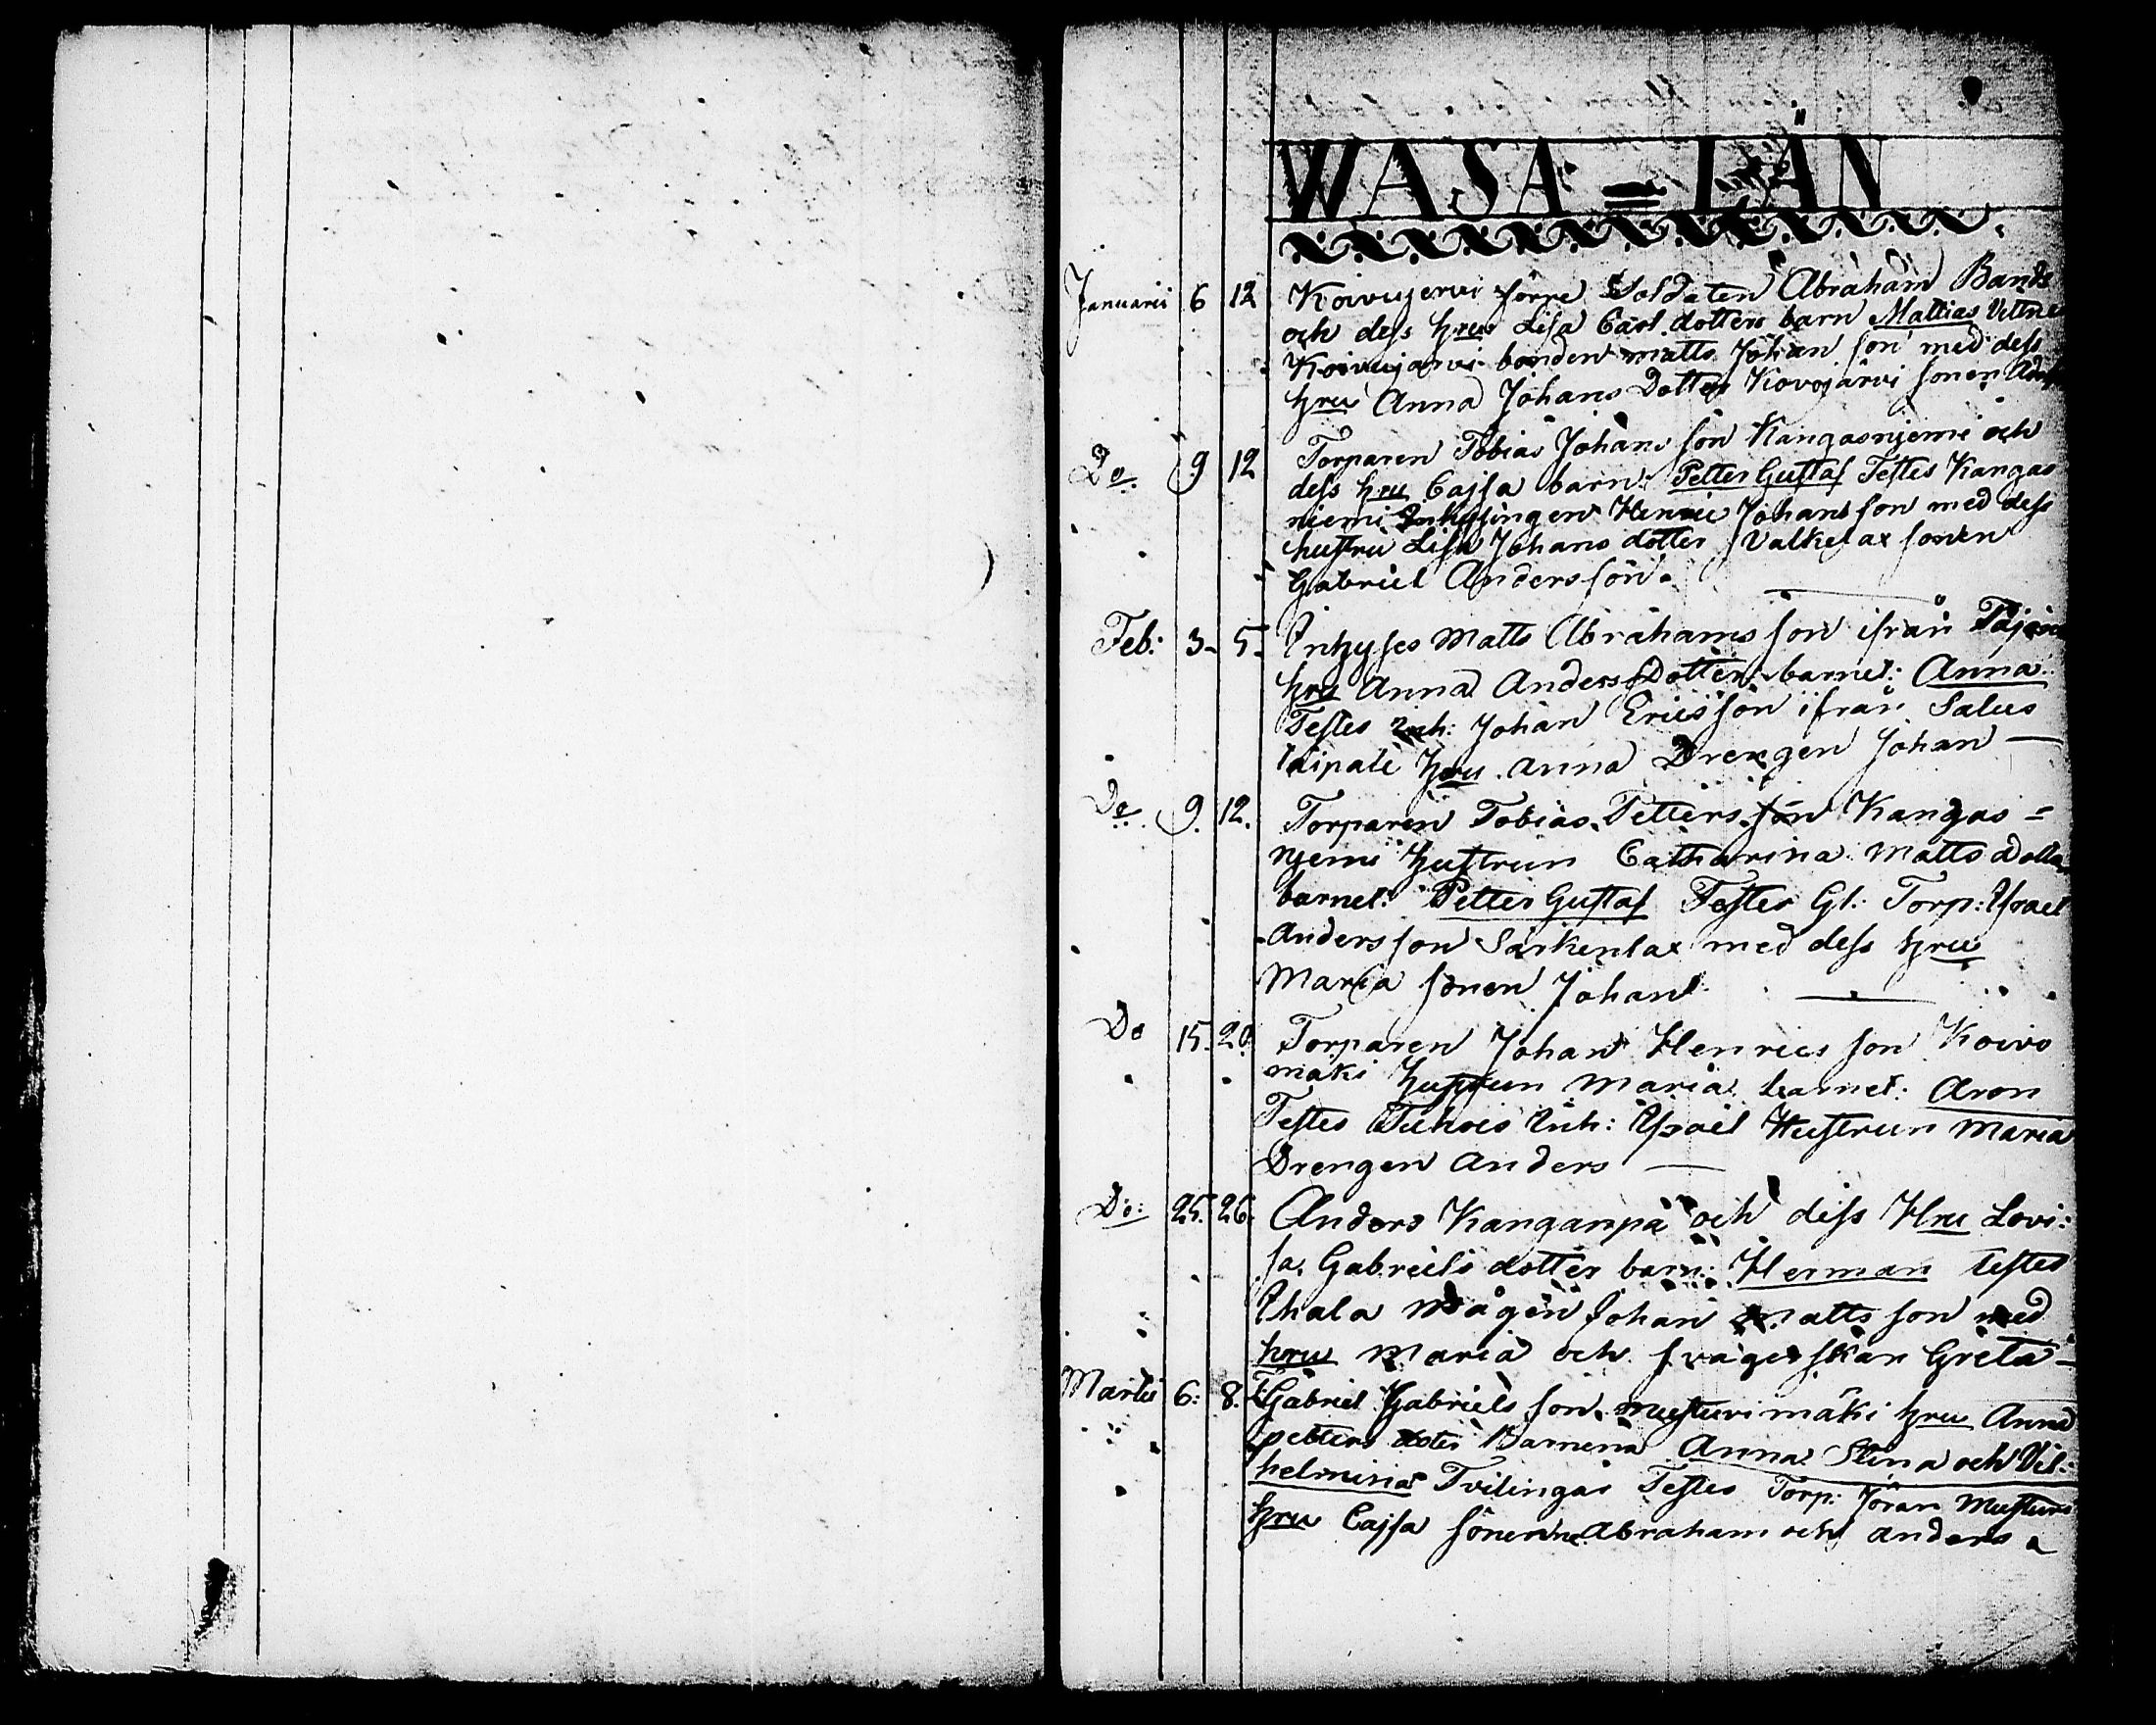 WASA = LÄN
Januarii 6 12 Koivujervi förre Soldaten Abraham Bands
och dess hru Lisa Carl dotters barn Mattias Vittne
Koivujärvi bonden matts Johan son med dess
hru Anna Johans Dotter Kovojärvi sonen
Do. 9 12 Torparen Tobias Johans son Kangasnjemi och
dess hru Cajsa barn: Petter Gustaf Testes Kangas
niemi Inhysingen Henric Johans son med dess
hustru Lisa Johans dotter Valkelax sonen
Gabriel Anders son.
Feb: 3. 5. Inhyses Matts Abrahams son ifrån
hru Anna Anders Dotter barnet: Anna
Testes Inh: Johan Erics son ifrån Salus
taipale hru. anna Drengen Johan —
Do. 9. 12. Torparen Tobias Petters son Kangas =
njemi hustrun Catharina Matts Dotter
barnet: Petter Gustaf Testes Gl: Torp: Israel
Anders son Särkenlax med dess hru
Maria sonen Johan
Do 15. 20. Torparen Johan Henrics son Koivo
mäki hustrun Maria barnet: Aron
Testes Inh: Israel Hustrun Maria
Drengen Anders —
Do: 25. 26. Anders Kanganpä och dess Hru Lovi:
sa, Gabriels dotter barn: Herman testes
Ihala Mågen Johan Matts son med
hru Maria och svägerskan Greta —
Martii 6: 8. Gabriel Gabriels son musturimäki hru Anna
petters doter Barnena Anna Stina och Vil:
helmina Tvilingar Testes Torp: Jöran Musturi
hru Cajsa sönerne Abraham och anders